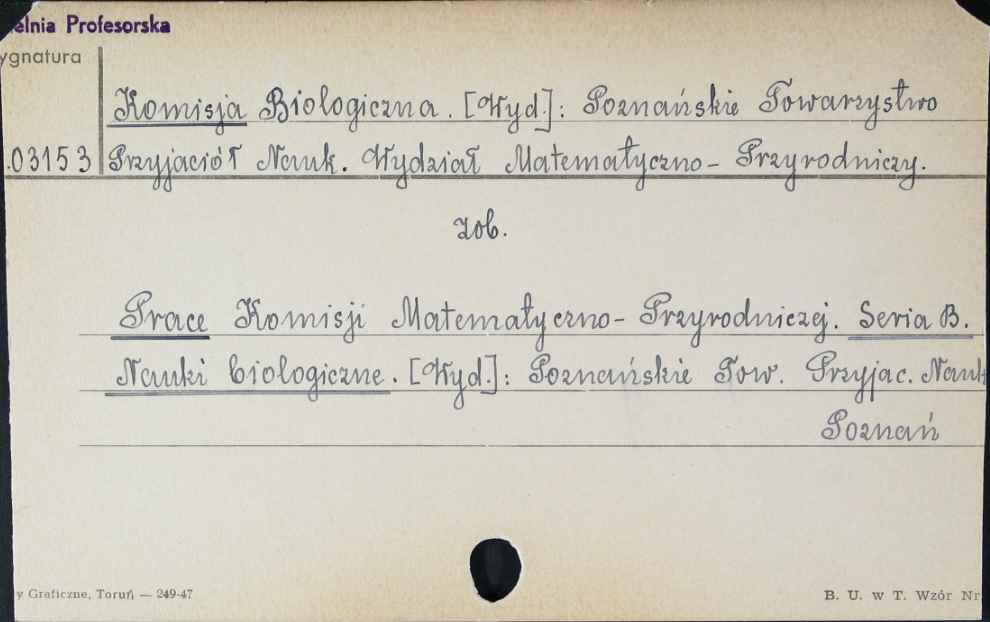 elnia Profesorska
ygnatura
Komisja Biologiczna. [Wyd.]: Poznańskie Towarzystwo
.03153 Przyjaciół Nauk. Wydział Matematyczno-Przyrodniczy.
zob.
Prace Komisji Matematyczno-Przyrodniczej. Seria B.
Nauki biologiczne. [Wyd.]: Poznańskie Tow. Przyjac. Nauk
Poznań
y Graficzne, Toruń — 249-47
B. U. w T. Wzór Nr